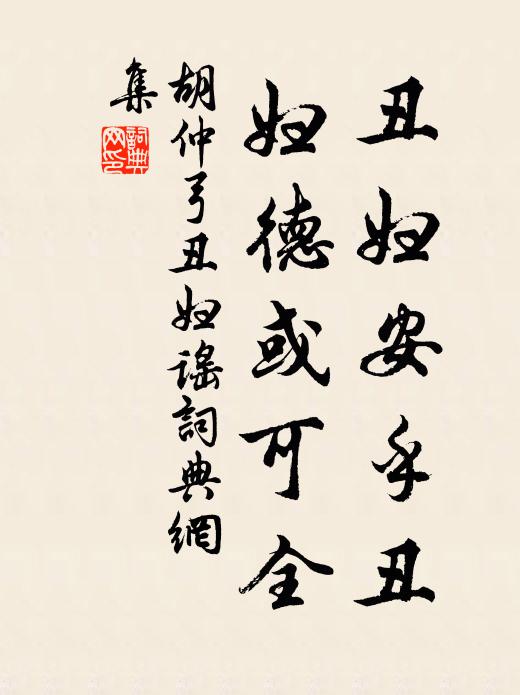 丑妇安乎丑
妇德或可全
胡仲弓丑妇谣詞典網
集
詞典網印